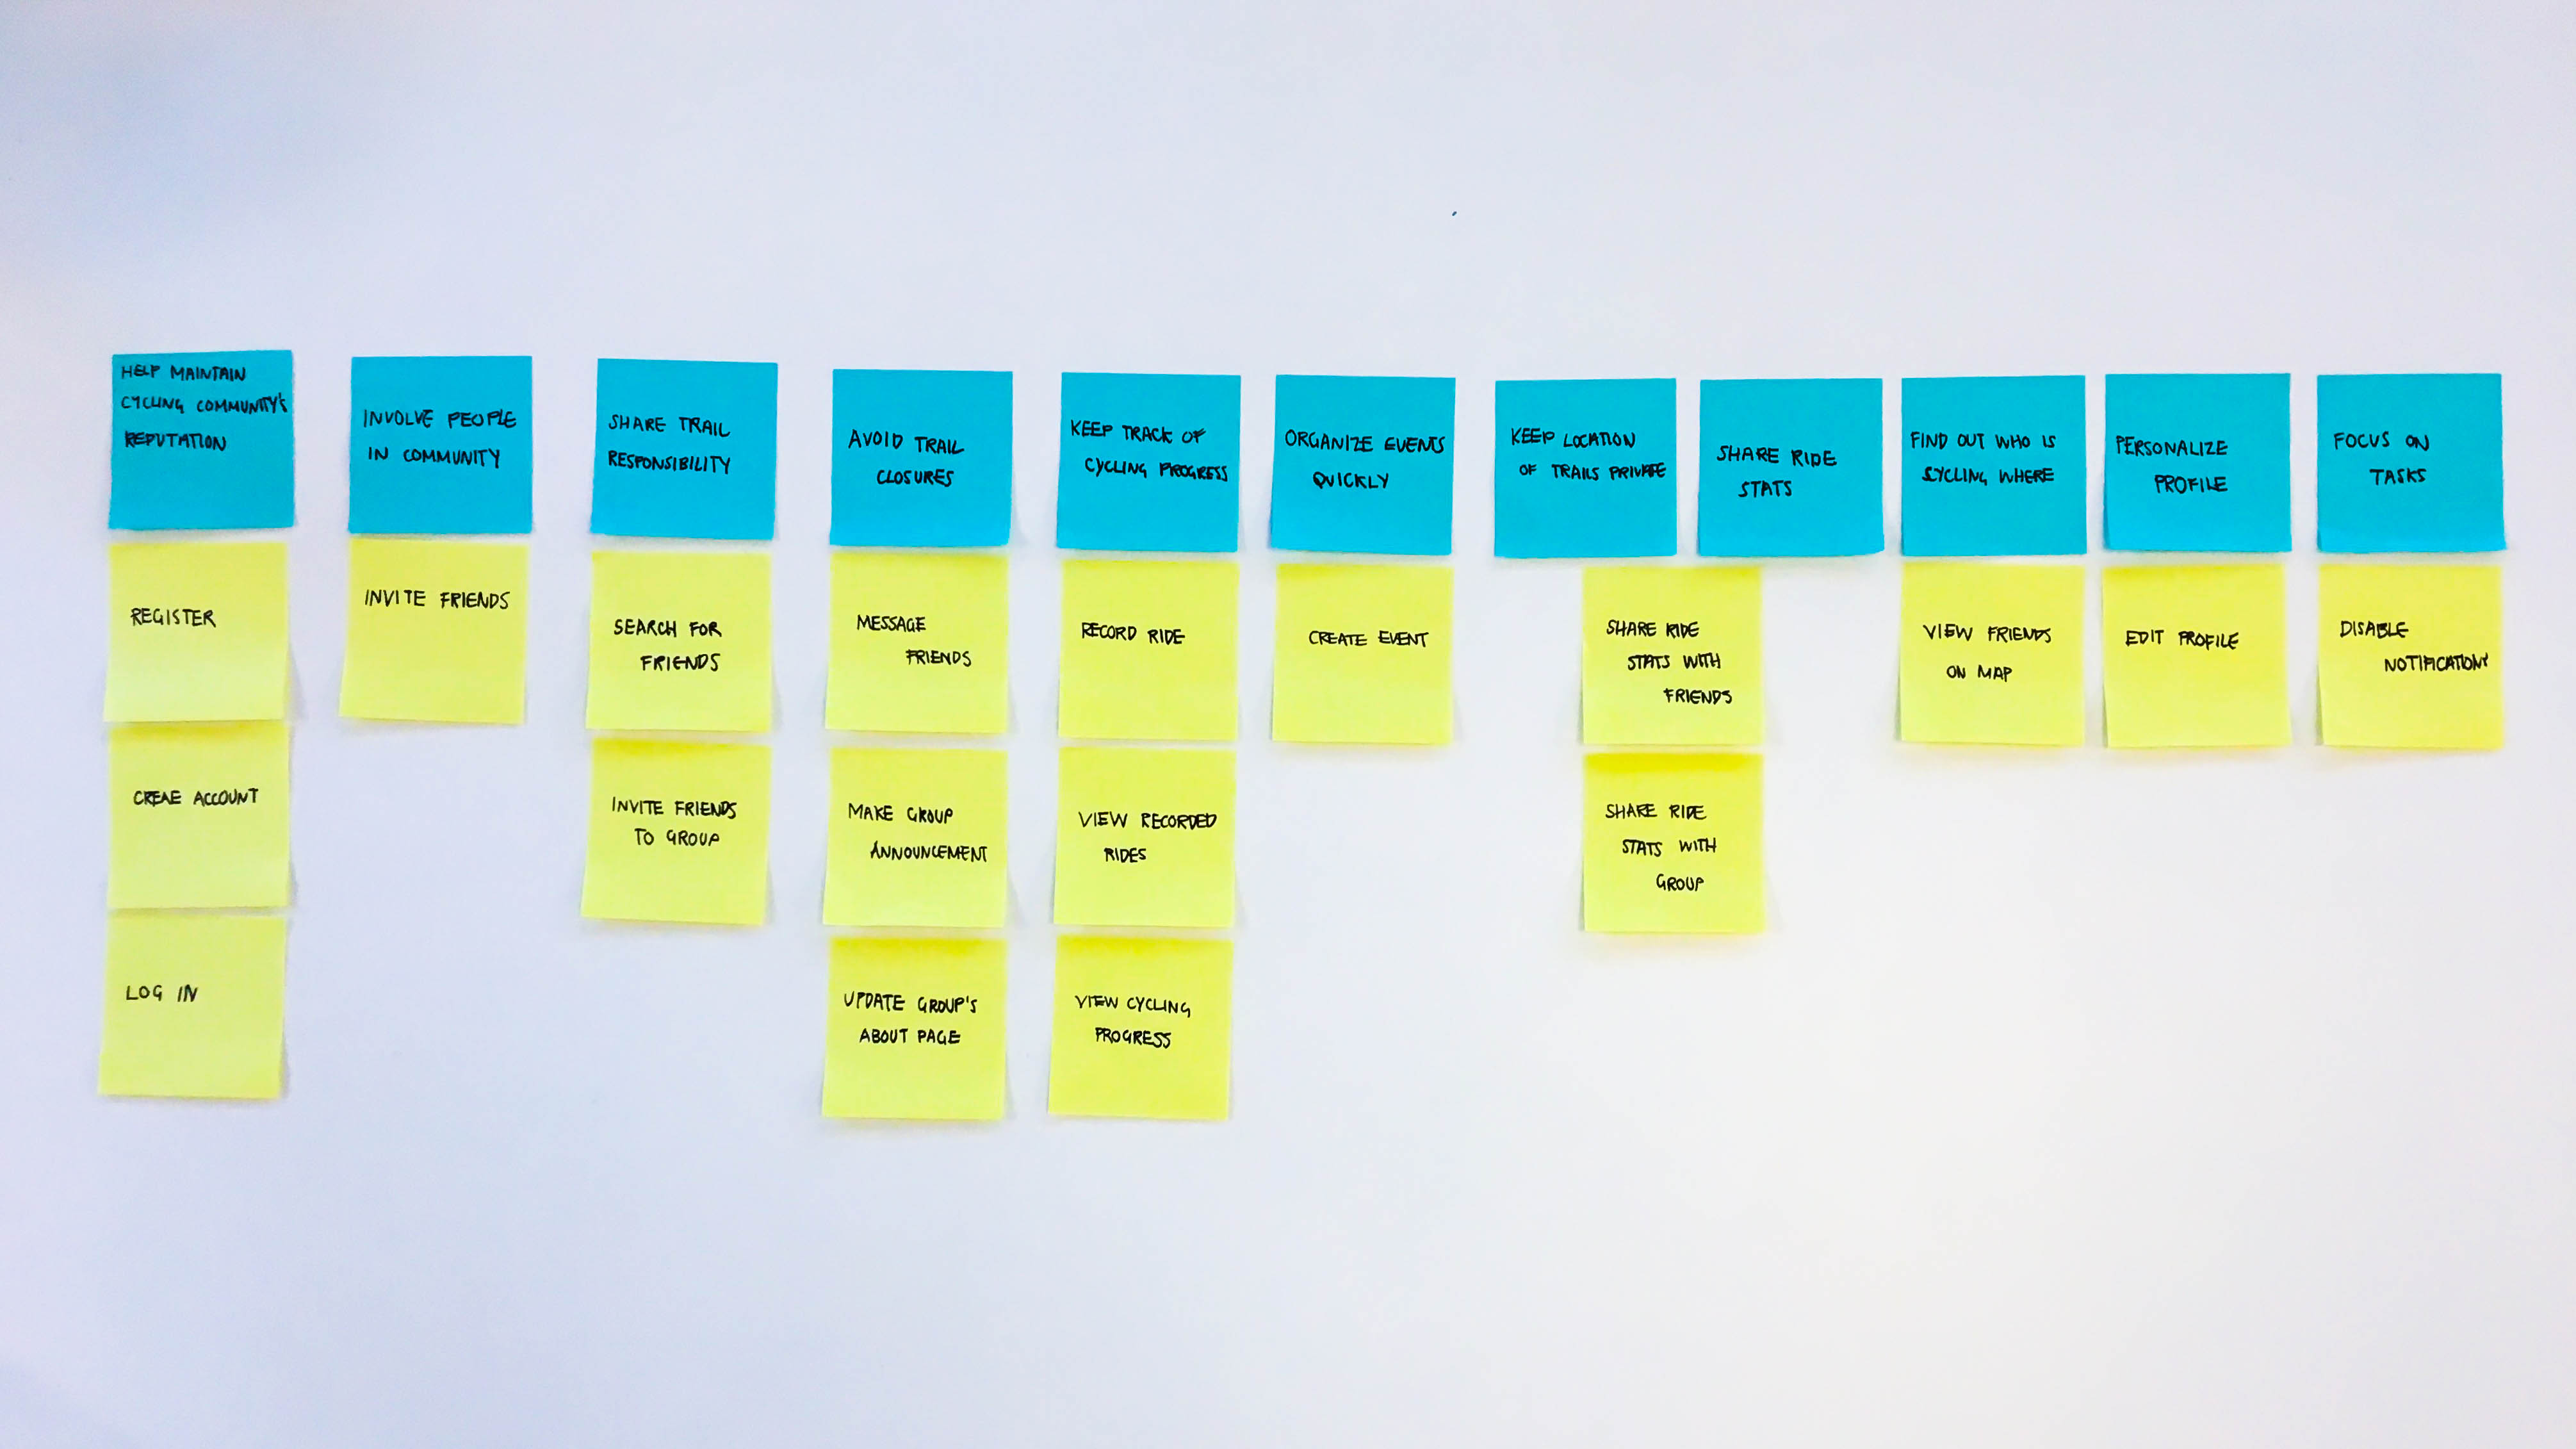 HELP MAINTAIN
CYCLING COMMUNITY'S
REPUTATION
REGISTER
CREAE ACCOUNT
LOG IN
INVOLVE PEOPLE
IN COMMUNITY
INVITE FRIENDS
SHARE TRAIL
RESPONSIBILITY
SEARCH FOR
FRIENDS
INVITE FRIENDS
TO GROUP
AVOID TRAIL
CLOSURES
MESSAGE
FRIENDS
MAKE GROUP
ANNOUNCEMENT
UPDATE GROUP'S
ABOUT PAGE
KEEP TRACK OF
CYCLING PROGRESS
RECORD RIDE
VIEW RECORDED
RIDES
VIEW CYCLING
PROGRESS
ORGANIZE EVENTS
QUICKLY
CREATE EVENT
KEEP LOCATION
OF TRAILS PRIVATE
SHARE RIDE
STATS
SHARE RIDE
STATS WITH
FRIENDS
SHARE RIDE
STATS WITH
GROUP
FIND OUT WHO IS
CYCLING WHERE
VIEW FRIENDS
ON MAP
PERSONALIZE
PROFILE
EDIT PROFILE
FOCUS ON
TASKS
DISABLE
NOTIFICATIONS